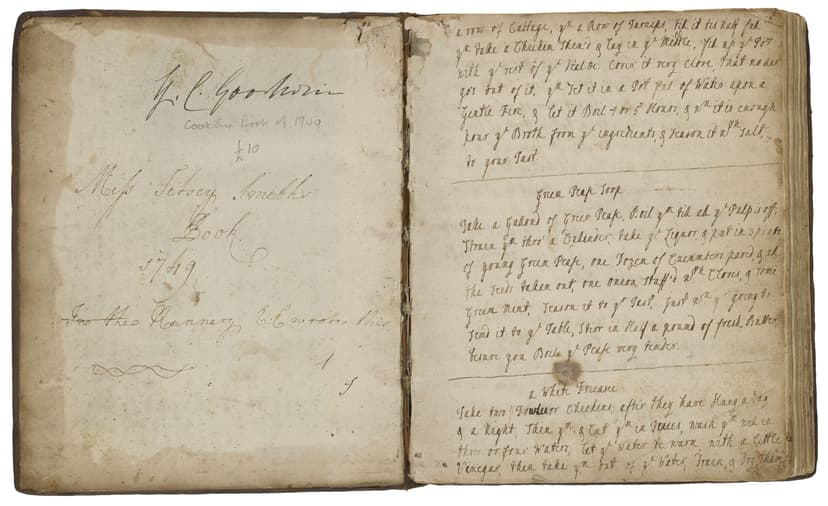 Cookery Book of 1749
£10
Miss Betsey Smith's
Book
1749
Nunnery
a row of Cabbage, yn a Row of Turnips, till it tis half full
yn take a Chicken Skin'd & lay in ye Middle, fill up ye Pot
with ye rest of ye Cover it very close, that no air
gos out of it, yn set it in a Pot full of Water upon a
Gentle Fire, & let it Boil 4 or 5 Hours, & wn it is enough
pour ye Broth from ye ingredients, & season it wth Salt
to your Tast.
Green Pease Soop
Take a Gallond of Green Pease, Boil ym till all ye Pulp is off,
Strain ym thro' a Cullender, take ye Liquor, & put in 3 pints
of young Green Pease, one Dozen of Cucumbers pared, & all
the Seeds taken out, one onion Stuff'd wth Cloves, & some
Green Mint, Season it to ye Tast, Just wn yr going to
Send it to ye Table, Stir in Half a pound of fresh Butter,
besure you Boile ye Pease very tender.
a White Fricasie
Take two or Chickens, after they have Hung a day
& a Night, Skin ym, & Cut ym in Pieces, wash ym well in
three or four Waters, let ye Water be warm with a little
Vinegar, then take ym out of ye Water, Drain, & Dry them